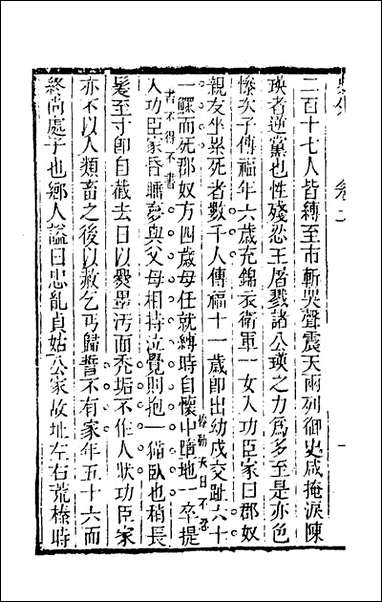 卷二
二百十七人皆縛至市斬哭聲震天兩列御史咸掩淚陳
瑛者逆黨也性殘忍王屠戮諸公瑛之力爲多至是亦色
慘次子傳福年六歲充錦衣衛軍一女入功臣家曰郡奴
親友坐累死者數千人傳福十一歲即出幼戍交趾六十
一觸而死郡奴方四歲母任就縛時自懷中墮地一卒提
入功臣家昏瞶意與父母相持泣覺則抱一循臥也稍長
髮至寸即自截去日以爨墨汚而禿垢不作人狀功臣家
亦不以人類畜之後以赦乞丐歸誓不有家年五十六而
終尚處子也鄉人諡曰忠亂貞姑公家故址左右荒榛時